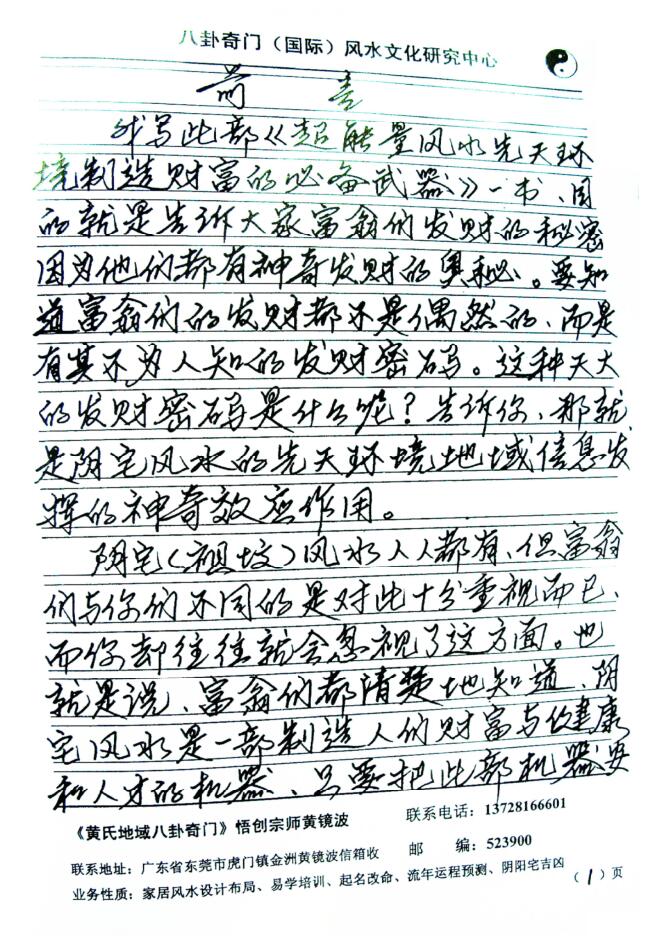 八卦奇门（国际）风水文化研究中心
前言
我写此部《超能量风水先天环
境制造财富的必备武器》一书、目
的就是告诉大家富翁们发财的秘密
因为他们都有神奇发财的奥秘。要知
道富翁们的发财都不是偶然的、而是
有其不为人知的发财密码。这种天大
的发财密码是什么呢？告诉你、那就
是阴宅风水的先天环境地域信息发
挥的神奇效应作用。
阴宅（祖坟）风水人人都有、但富翁
们与你们不同的是对此十分重视而已、
而你却往往就会忽视了这方面。也
就是说、富翁们都清楚地知道、阴
宅风水是一部制造人们财富与健康
和人才的机器、只要把此部机器安
《黄氏地域八卦奇门》悟创宗师黄镜波
联系电话：13728166601
联系地址：广东省东莞市虎门镇金洲黄镜波信箱收
邮 编：523900
业务性质：家居风水设计布局、易学培训、起名改命、流年运程预测、阴阳宅吉凶
（1）页